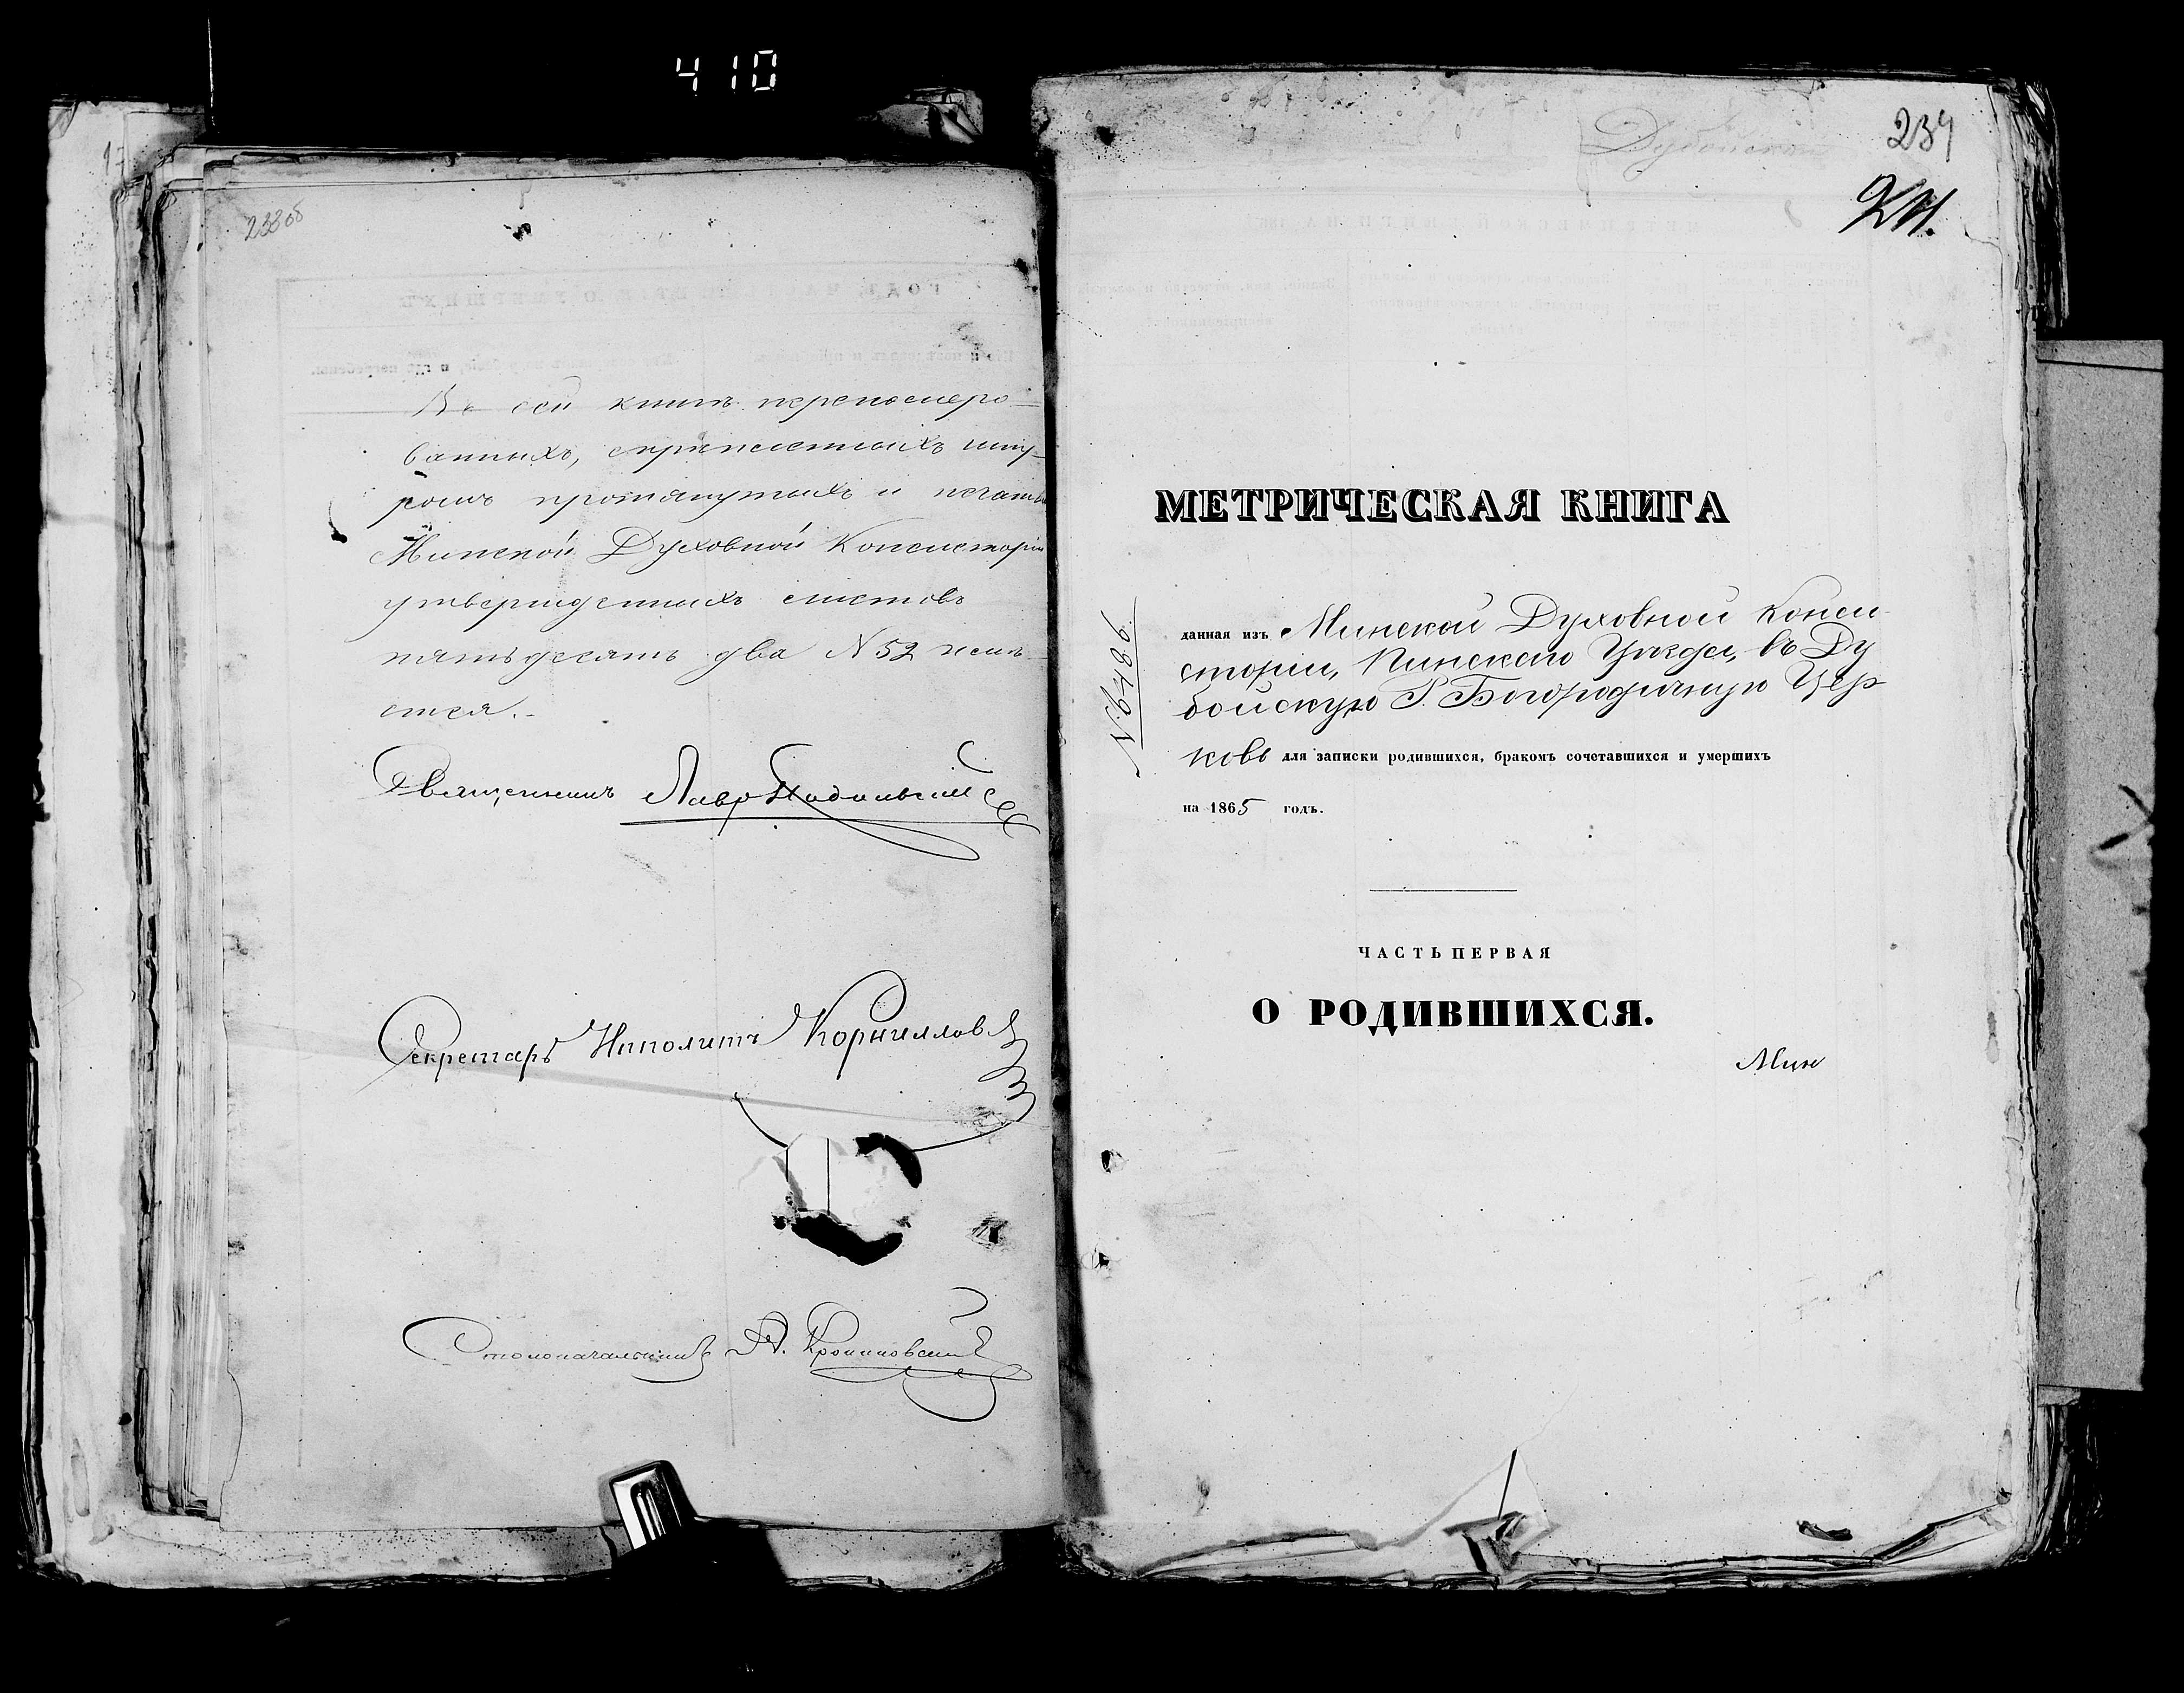 410
233об
Въ сей книгѣ перенумеро-
ванныхъ, скрѣпленныхъ шну-
ромъ протянутыхъ и печатью
Минской Духовной Консисторіи
утвержденныхъ листовъ
пятьдесятъ два N 52 числ-
ится.-
Священникъ Лавръ
Секретарь Ипполитъ Корниловъ
Столоначальникъ А.
Дубойская
234
МЕТРИЧЕСКАЯ КНИГА
данная изъ Минской Духовной Конси
сторіи, Пинскаго Уѣзда, въ Ду
бойскую Р. Богородичную Цер
ковь для записки родившихся, бракомъ сочетавшихся и умершихъ
на 1865 годъ.
N 9486
ЧАСТЬ ПЕРВАЯ
О РОДИВШИХСЯ.
Мин